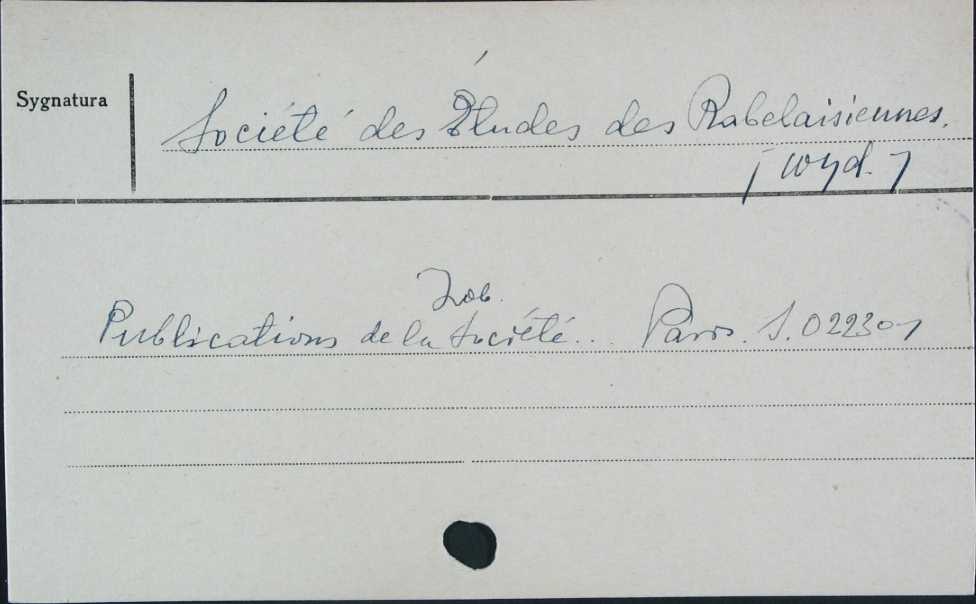 Sygnatura
Société des Études des Rabelaisiennes.
[wyd.]
Zob.
Publications de la Société... Paris. S. 02230